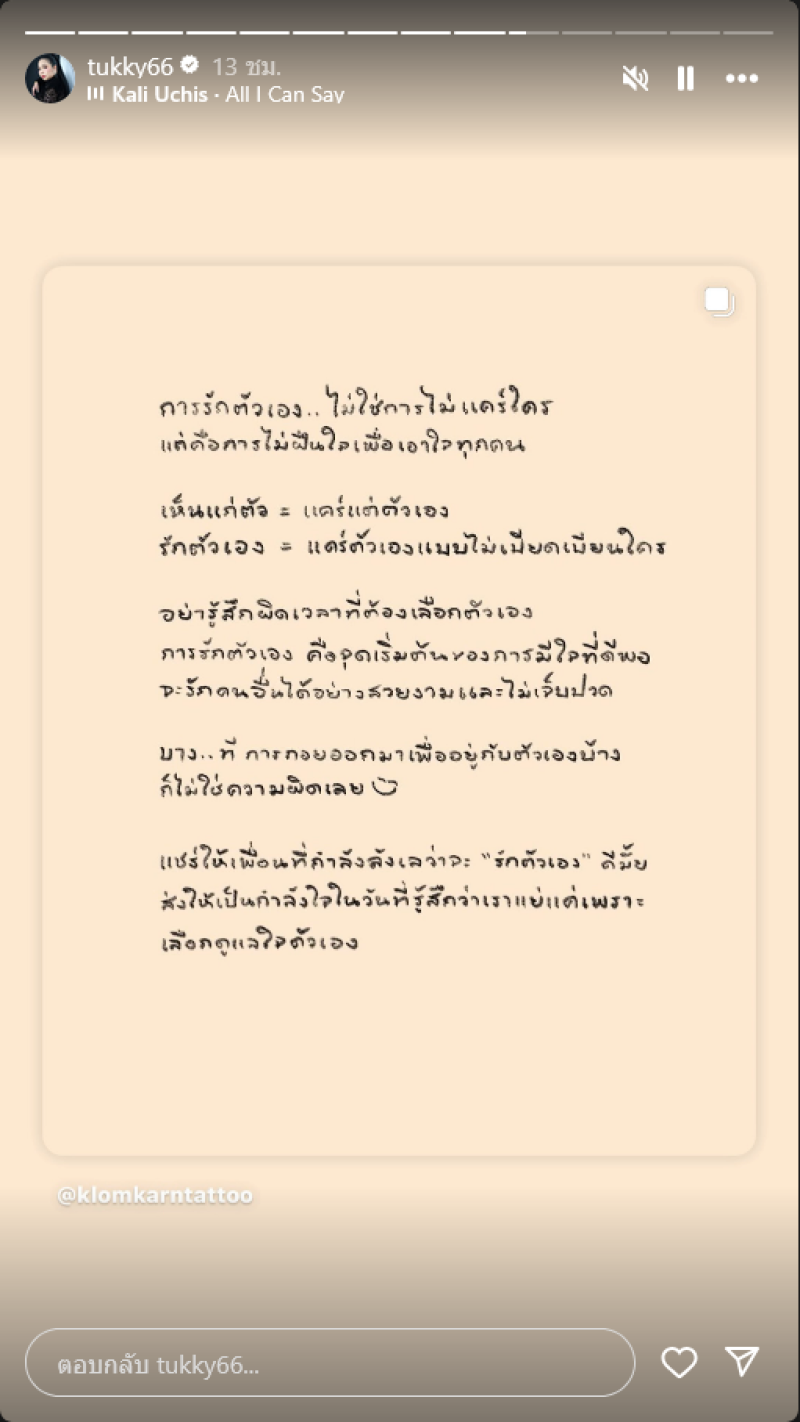 tukky66 13 ชม.
Kali Uchis · All I Can Say
การรักตัวเอง.. ไม่ใช่การไม่แคร์ใคร
แต่คือการไม่ฝืนใจเพื่อเอาใจทุกคน
เห็นแก่ตัว = แคร์แต่ตัวเอง
รักตัวเอง = แคร์ตัวเองแบบไม่เบียดเบียนใคร
อย่ารู้สึกผิดเวลาที่ต้องเลือกตัวเอง
การรักตัวเอง คือจุดเริ่มต้นของการมีใจที่ดีพอ
จะรักคนอื่นได้อย่างสวยงามและไม่เจ็บปวด
บาง..ที การถอยออกมาเพื่ออยู่กับตัวเองบ้าง
ก็ไม่ใช่ความผิดเลย
แชร์ให้เพื่อนที่กำลังลังเลว่าจะ "รักตัวเอง" ดีมั้ย
ส่งให้เป็นกำลังใจในวันที่รู้สึกว่าเราแย่แค่เพราะ
เลือกดูแลใจตัวเอง
@klomkarntattoo
ตอบกลับ tukky66...